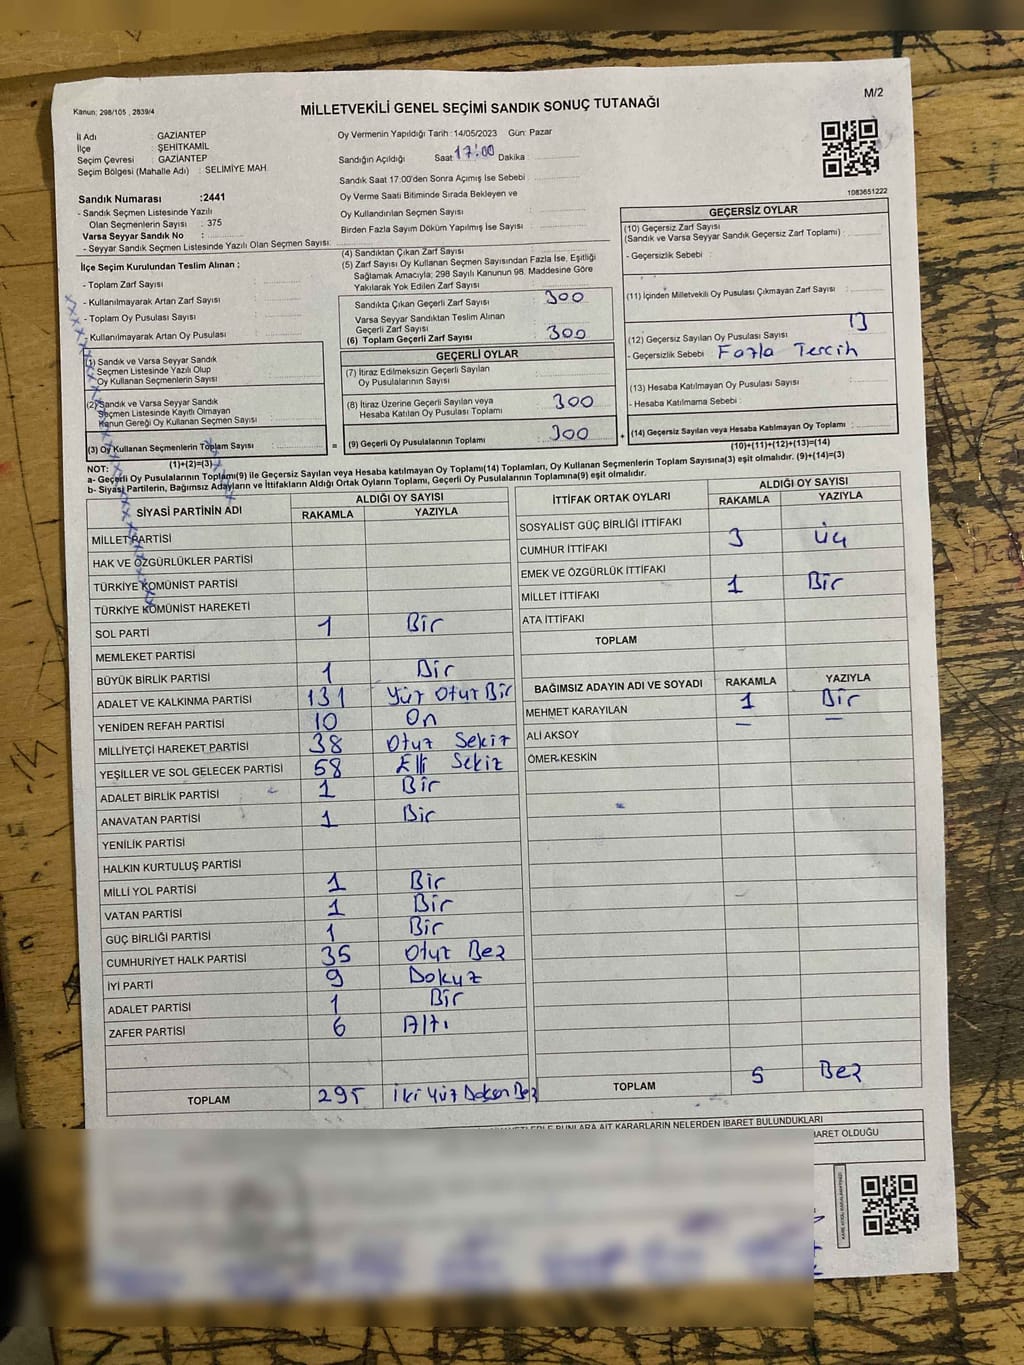 Kanun: 298/105 , 2839/4
MİLLETVEKİLİ GENEL SEÇİMİ SANDIK SONUÇ TUTANAĞI
M/2
İl Adı : GAZİANTEP
İlçe : ŞEHİTKAMİL
Seçim Çevresi : GAZİANTEP
Seçim Bölgesi (Mahalle Adı) : SELİMİYE MAH.
Oy Vermenin Yapıldığı Tarih : 14/05/2023 Gün: Pazar
Sandığın Açıldığı Saat 17:00 Dakika :
Sandık Saat 17:00'den Sonra Açımış İse Sebebi :
Oy Verme Saati Bitiminde Sırada Bekleyen ve
Oy Kullandırılan Seçmen Sayısı :
Birden Fazla Sayım Döküm Yapılmış İse Sayısı :
1083651222
Sandık Numarası :2441
- Sandık Seçmen Listesinde Yazılı
Olan Seçmenlerin Sayısı : 375
Varsa Seyyar Sandık No :
- Seyyar Sandık Seçmen Listesinde Yazılı Olan Seçmen Sayısı:
İlçe Seçim Kurulundan Teslim Alınan ;
- Toplam Zarf Sayısı :
- Kullanılmayarak Artan Zarf Sayısı :
- Toplam Oy Pusulası :
- Kullanılmayarak Artan Oy Pusulası :
(1) Sandık ve Varsa Seyyar Sandık
Seçmen Listesinde Yazılı Olup
Oy Kullanan Seçmenlerin Sayısı :
(2) Sandık ve Varsa Seyyar Sandık
Seçmen Listesinde Kayıtlı Olmayan
Kanun Gereği Oy Kullanan Seçmen Sayısı :
(3) Oy Kullanan Seçmenlerin Toplam Sayısı :
(1)+(2)=(3)
(4) Sandıktan Çıkan Zarf Sayısı :
(5) Zarf Sayısı Oy Kullanan Seçmen Sayısından Fazla İse, Eşitliği
Sağlamak Amacıyla; 298 Sayılı Kanunun 98. Maddesine Göre
Yakılarak Yok Edilen Zarf Sayısı :
Sandıkta Çıkan Geçerli Zarf Sayısı : 300
Varsa Seyyar Sandıktan Teslim Alınan
Geçerli Zarf Sayısı :
(6) Toplam Geçerli Zarf Sayısı : 300
GEÇERLİ OYLAR
(7) İtiraz Edilmeksizin Geçerli Sayılan
Oy Pusulalarının Sayısı :
(8) İtiraz Üzerine Geçerli Sayılan veya
Hesaba Katılan Oy Pusulası Toplamı : 300
= (9) Geçerli Oy Pusulalarının Toplamı : 300 +
GEÇERSİZ OYLAR
(10) Geçersiz Zarf Sayısı
(Sandık ve Varsa Seyyar Sandık Geçersiz Zarf Toplamı) :
- Geçersizlik Sebebi :
(11) İçinden Milletvekili Oy Pusulası Çıkmayan Zarf Sayısı :
(12) Geçersiz Sayılan Oy Pusulası Sayısı : 13
- Geçersizlik Sebebi : Fazla Tercih
(13) Hesaba Katılmayan Oy Pusulası Sayısı :
- Hesaba Katılmama Sebebi :
(14) Geçersiz Sayılan veya Hesaba Katılmayan Oy Toplamı :
(10)+(11)+(12)+(13)=(14)
NOT:
a- Geçerli Oy Pusulalarının Toplamı(9) ile Geçersiz Sayılan veya Hesaba katılmayan Oy Toplamı(14) Toplamları, Oy Kullanan Seçmenlerin Toplam Sayısına(3) eşit olmalıdır. (9)+(14)=(3)
b- Siyasi Partilerin, Bağımsız Adayların ve İttifakların Aldığı Ortak Oyların Toplamı, Geçerli Oy Pusulalarının Toplamına(9) eşit olmalıdır.
SİYASİ PARTİNİN ADI ALDIĞI OY SAYISI
RAKAMLA YAZIYLA
MİLLET PARTİSİ
HAK VE ÖZGÜRLÜKLER PARTİSİ
TÜRKİYE KOMÜNİST PARTİSİ
TÜRKİYE KOMÜNİST HAREKETİ
SOL PARTİ 1 Bir
MEMLEKET PARTİSİ
BÜYÜK BİRLİK PARTİSİ 1 Bir
ADALET VE KALKINMA PARTİSİ 131 Yüz Otuz Bir
YENİDEN REFAH PARTİSİ 10 On
MİLLİYETÇİ HAREKET PARTİSİ 38 Otuz Sekiz
YEŞİLLER VE SOL GELECEK PARTİSİ 58 Elli Sekiz
ADALET BİRLİK PARTİSİ 1 Bir
ANAVATAN PARTİSİ 1 Bir
YENİLİK PARTİSİ
HALKIN KURTULUŞ PARTİSİ
MİLLİ YOL PARTİSİ 1 Bir
VATAN PARTİSİ 1 Bir
GÜÇ BİRLİĞİ PARTİSİ 1 Bir
CUMHURİYET HALK PARTİSİ 35 Otuz Beş
İYİ PARTİ 9 Dokuz
ADALET PARTİSİ 1 Bir
ZAFER PARTİSİ 6 Altı
TOPLAM 295 İki Yüz Doksan Beş
İTTİFAK ORTAK OYLARI ALDIĞI OY SAYISI
RAKAMLA YAZIYLA
SOSYALİST GÜÇ BİRLİĞİ İTTİFAKI
CUMHUR İTTİFAKI 3 Üç
EMEK VE ÖZGÜRLÜK İTTİFAKI
MİLLET İTTİFAKI 1 Bir
ATA İTTİFAKI
TOPLAM
BAĞIMSIZ ADAYIN ADI VE SOYADI RAKAMLA YAZIYLA
MEHMET KARAYILAN 1 Bir
ALİ AKSOY — —
ÖMER KESKİN
TOPLAM 5 Beş
BUNLARA AİT KARARLARIN NELERDEN İBARET BULUNDUKLARI
İBARET OLDUĞU